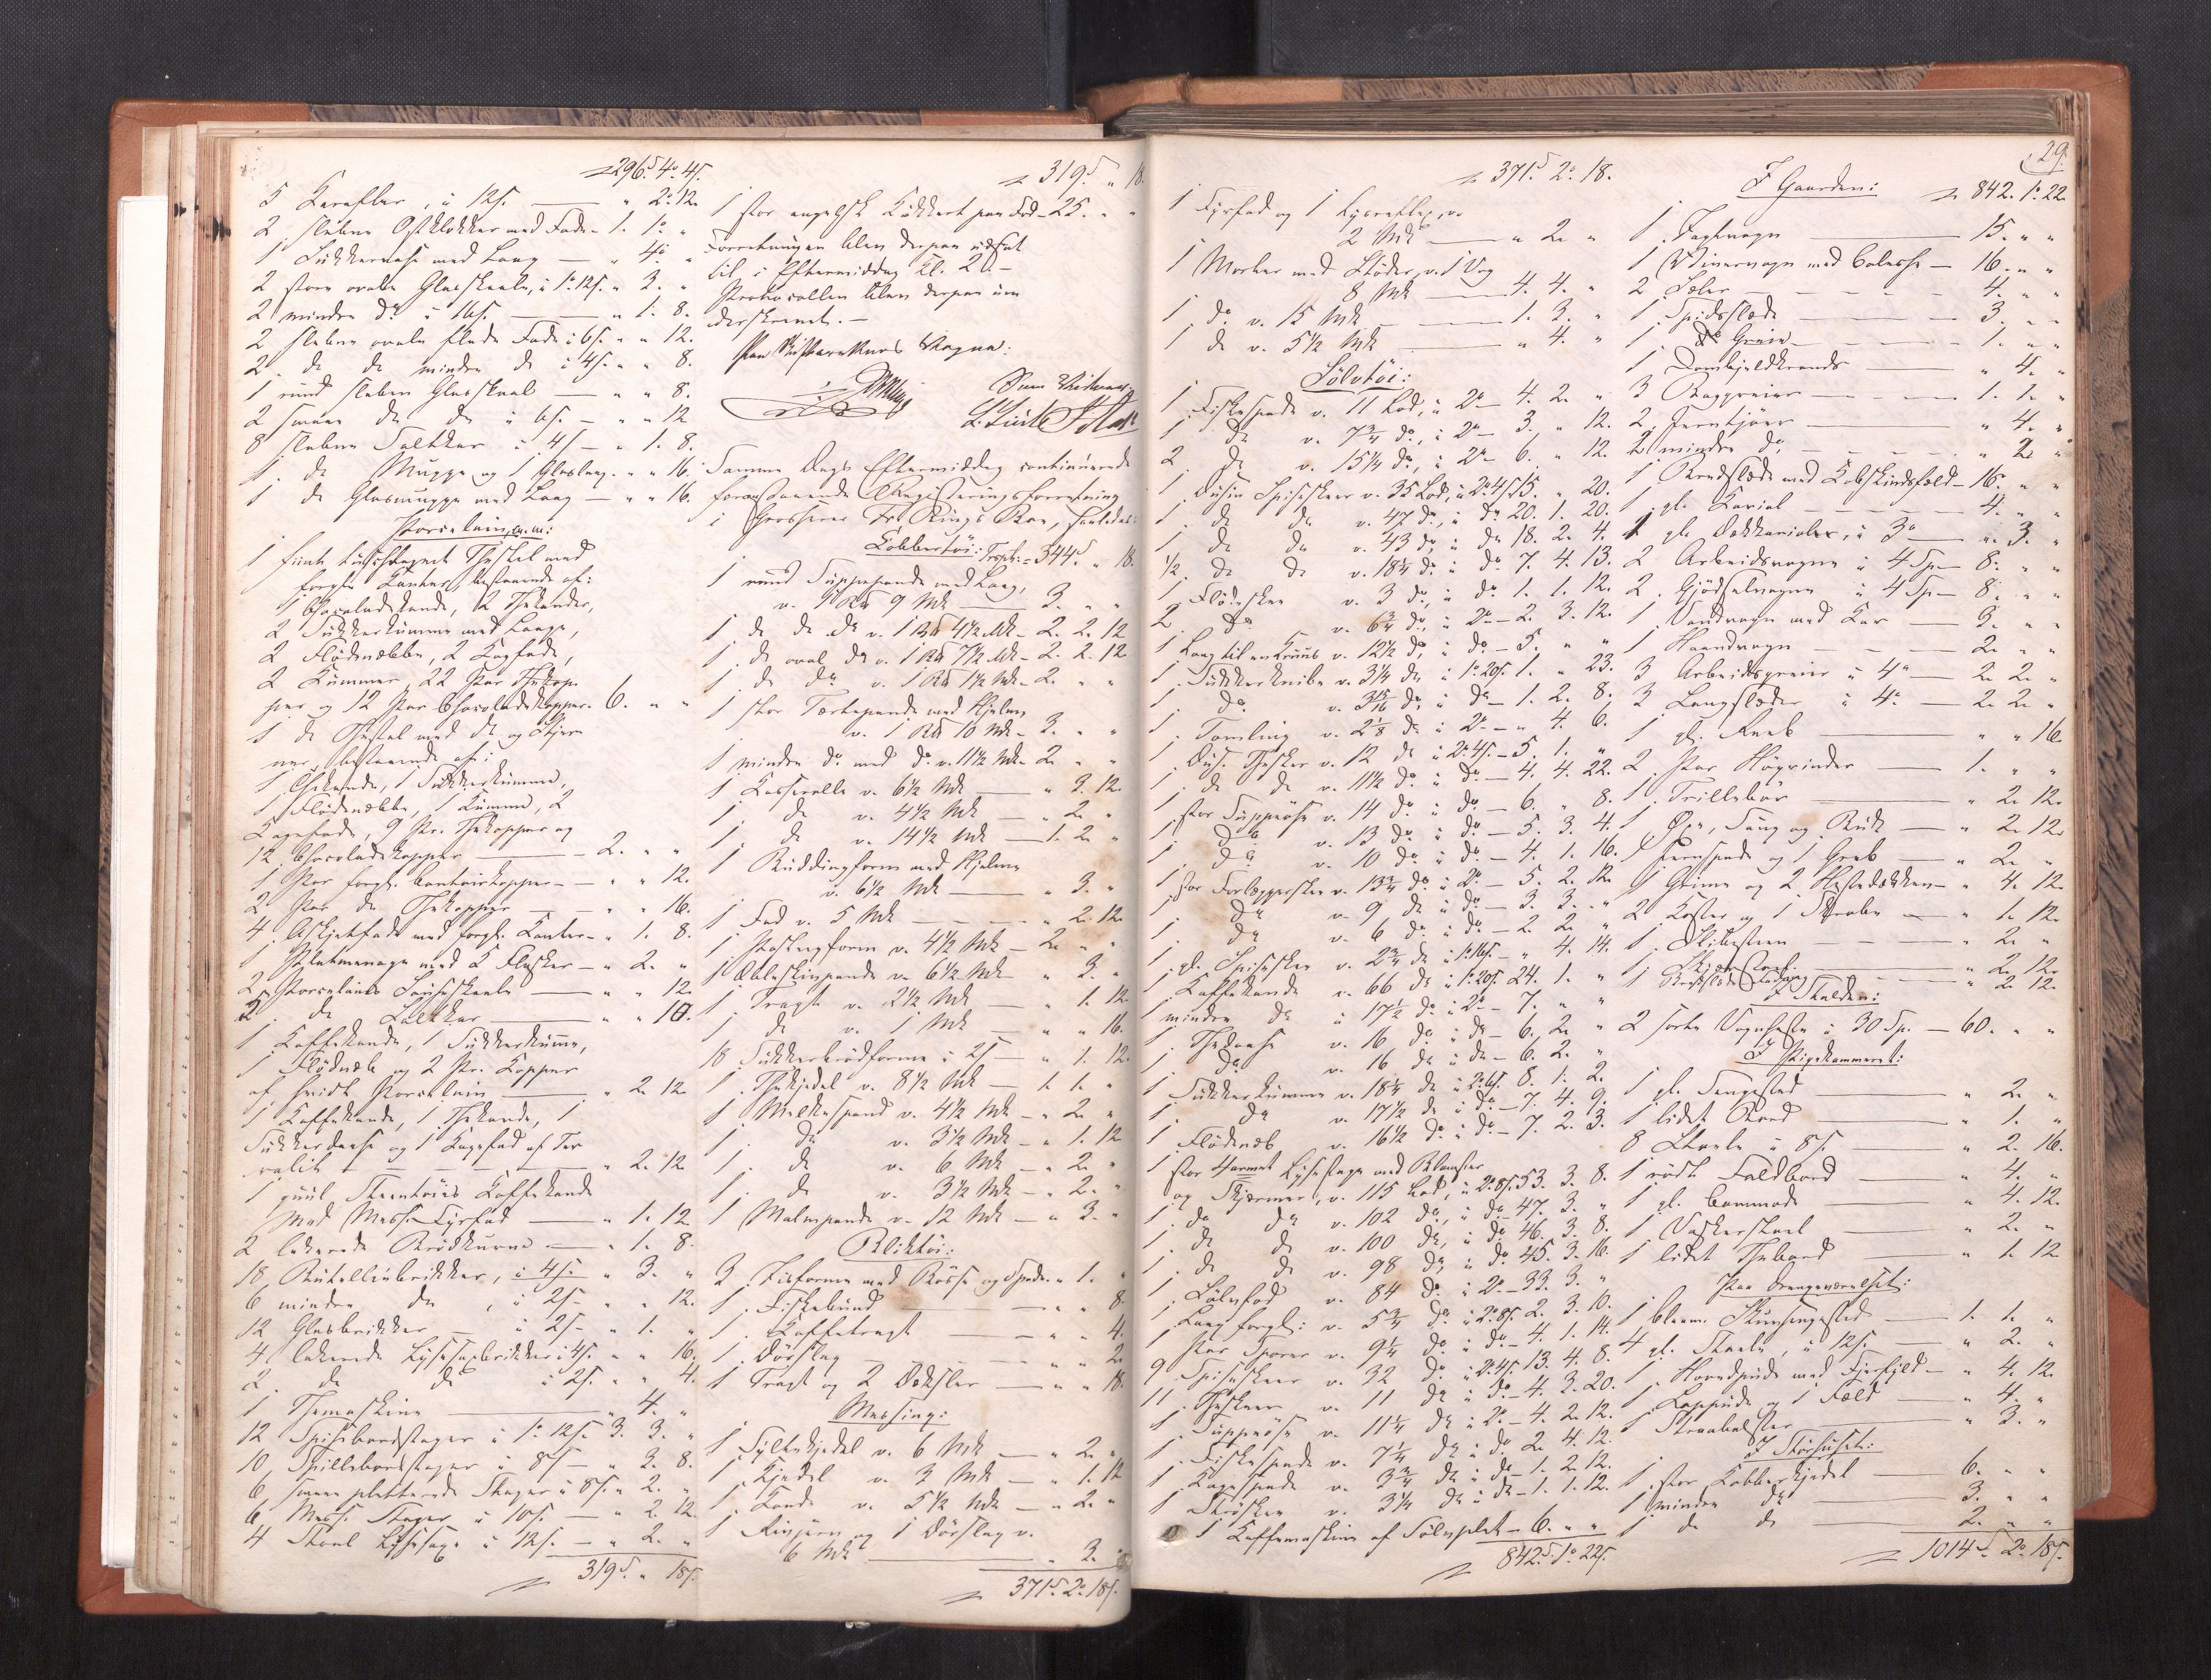 296. 4. 4ſ.
5 Karafler, à 12ſ. — " 2. 12.
2 slebne Ostklokker med Fade - 1. 1. "
1 Sukkervase med Laag — " 4. "
2 store ovale Glasskaale, à 1. 12ſ. " 3. "
2 mindre do à 16ſ. — " 1. 8.
2 slebne ovale flade Fade à 6ſ. " " 12.
2 do do mindre do à 4ſ. " " 8.
1 rund sleben Glasskaal — " " 8.
2 smaae do do à 6ſ. — " " 12
8 slebne Saltkar à 4ſ — " 1. 8.
1 do Mugge og 1 Glaslaag. " " 16.
1 do Glasmugge med Laag — " " 16.
Porcelain m.m:
1 fiint Thestel med
forgt. Kanter, bestaaende af:
1 Chocoladekande, 2 Thekander,
2 Sukkerkummer med Laage,
2 Flödenæbbe, 2 Kagfade,
2 Kummer, 22 Par Thekop-
per og 12 Par Chocoladekopper. 6. " "
1 do Thestel med do og
bestaaende af:
1 Thekande, 1 Sukkerkumme,
1 Flödenæbbe, 1 Kumme, 2
Kagefade, 9 Pr. Thekopper og
12 Chocoladekopper — 2. " "
1 Par forgt. Kopper — " " 12.
2 Par do Thekopper — " " 16.
4 Asjetfade med forgt. Kanter " 1. 8.
1 Platmenage med 5 Flasker — " 2. "
2 Porcelains Skaale — " " 12
2 do Saltkar — " " 10.
1 Kaffekande, 1 Sukkerkumme,
1 Flödenæb og 2 Pr. Kopper
af hvidt Porcelain — " 2. 12
1 Kaffekande, 1 Thekande, 1
Sukkerdaase og 1 Kagefad af Ter
ralit — " 2. 12.
1 guul Steentöies Kaffekande
med Mess. Fyrfad — " 1. 12
2 lakerede Brödkurve — " 1. 8.
18 Butellieubrikker, à 4ſ. " 3. "
6 mindre do, à 2ſ — " " 12.
12 Glasbrikker à 2ſ — " 1. "
4 lakerede Lysesaxbrikker à 4ſ. " " 16.
2 do do à 2ſ. " " 4.
1 Themaskine — " 4. "
12 Spisebordstager à 1. 12ſ. 3. 3. "
10 Spillebordstager à 8ſ — " 3. 8.
6 smaae pletterede Stager à 8ſ. " 2. "
6 Mess. Stager à 10ſ. — " 2. 12.
4 Staal Lysesaxe à 12ſ. — " 2. "
319. " 18ſ.
319. " 18.
1 stor engelsk Kikkert paa Fod - 25. " "
Forretningen blev derpaa udsat
til i Eftermiddag Kl. 2 —
Protocollen blev derpaa un
derskrevet. —
Paa Skifterettens Vegne:
Som Vidner:
Samme Dags Eftermiddag continuerede
foranstaaende Registreringsforretning
i Grosserer Fr. Bo, saaledes:
Kobbertöi: Trspt. = 344. " 18.
1 rund Suppepande med Laag,
v. 1 Bd 9 Mk — 3. " "
1 do do do v. 1 Bd 4½ Mk — 2. 2. 12
1 do oval do v. 1 Bd 7½ Mk — 2. 2. 12
1 do do v. 1 Bd 1½ Mk — 2. " "
1 stor Tærtepande med Hjelm
v. 1 Bd 10 Mk — 3. " "
1 mindre do med do v. 11½ Mk — 2. " "
1 Kasserolle v. 6½ Mk — " 3. 12.
1 do v. 4½ Mk — " 2. "
1 do v. 14½ Mk — 1. 2. "
1 Buddingform med Hjelm
v. 6½ Mk — " 3. "
1 Fad v. 5 Mk — " 2. 12.
1 Posteyform v. 4½ Mk — 2. " "
1 Æbleskivpande v. 6½ Mk — " 3. "
1 Tragt v. 2½ Mk — " 1. 12
1 do v. 1 Mk — " " 16.
18 Sukkerbrödforme à 2ſ — " 1. 12.
1 Thekjedel v. 8½ Mk — 1. 1. "
1 Melkespand v. 4½ Mk — " 2. "
1 do v. 3½ Mk — " 1. 12
1 do v. 6 Mk — " 2. "
1 do v. 3½ Mk — " 2. "
1 Malmpande v. 12 Mk — " 3. "
Bliktöi:
3 Iisforme med Bösse og Spade " 1. "
1 Fiskebund — " " 8.
1 Kaffetragt — " " 4.
1 Dörslag — " " 2
1 Tragt og 2 Deksler — " " 18.
Messing:
1 Syltekjedel v. 6 Mk — " 2. "
1 Kjedel v. 3 Mk — " 1. 12
1 Kande v. 5½ Mk — " 2. "
1 Rivjern og 1 Dörslag v.
6 Mk — " 3. "
371. 2. 18ſ.
29.
371. 2. 18.
1 Fyrfad og 1 v.
2 Mk — " 2. "
1 Morter med Stöder, v. 1 Vog
8 Mk — 4. 4. "
1 do v. 15 Mk — 1. 3. "
1 do v. 5½ Mk — " 4. "
Sölvtöi:
1 Fiskespade v. 11 Lod, à 2 — 4. 2. "
1 do v. 7¾ do, à 2 — 3. " 12.
2 do v. 15¼ do, à 2 — 6. " 12.
1 Dusin Spiseskeer v. 35 Lod, à 2. 4ſ 15. " 20.
1 do do v. 47 do, à do 20. 1. 20.
1 do do v. 43 do, à do 18. 2. 4.
½ do do v. 18¼ do à do 7. 4. 13.
1 Flödeskee v. 3 do, à do 1. 1. 12.
2 do v. 6¾ do, à 2 — 2. 3. 12.
1 Laag til en Kruus v. 12½ do, à do — 5. " "
1 Sukkerknibe v. 3¼ do à 1. 20ſ. 1. " 23.
1 do v. 3 15/16 do à do — 1. 2. 8.
1 Tomling v. 2⅛ do à 2 — " 4. 6.
1 Dus. Theskeer v. 12 do à 2. 4ſ. — 5. 1. "
1 do do v. 11½ do à do — 4. 4. 22.
1 stor Suppeöse v. 14 do à do — 6. " 8.
1 do v. 13 do à do — 5. 3. 4.
1 do v. 10 do à do — 4. 1. 16.
1 stor Forlæggerskee v. 13¾ do à 2 — 5. 2. 12.
1 do v. 9 do à do — 3. 3. "
1 do v. 6 do à do — 2. 2. "
1 gl. Spiseskee v. 2¾ do à 1. 16ſ. — " 4. 14.
1 Kaffekande v. 66 do à 1. 20ſ. 24. 1. "
1 mindre do à 17½ do à 2 — 7. " "
1 Thedaase v. 16 do à do — 6. 2. "
1 do v. 16 do à do — 6. 2. "
1 Sukkerkumme v. 18¼ do à 2. 6ſ. 8. 1. 2.
1 do v. 17½ do à do — 7. 4. 9.
1 Flödenæb v. 16½ do à do — 7. 2. 3.
1 stor 4armet Lysestage med Blomster
og Skjærmer, v. 115 Lod, à 2. 8ſ. 53. 3. 8.
1 do do v. 102 do, à do 47. 3. "
1 do do v. 100 do, à do 46. 3. 8.
1 do do v. 98 do à do 45. 3. 16.
1 Sölvfad v. 84 do à 2 — 33. 3. "
1 Laag forgt: v. 5¾ do à 2. 8ſ. 2. 3. 10.
1 Par Sporer v. 9¼ do à do — 4. 1. 14.
9 Spiseskeer v. 32 do à 2. 4ſ. 13. 4. 8.
11 Theskeer v. 11 do à do — 4. 3. 20.
1 Suppeöse v. 11¼ do à 2 — 4. 2. 12.
1 Fiskespade v. 7¼ do à do 2. 4. 12.
1 Kagespade v. 3¾ do à do — 1. 2. 12.
1 Ströskee v. 3¼ do à do — 1. 1. 12.
1 Kaffemaskine af Sölvplet — 6. " "
842. 1. 22ſ.
I Gaarden: 842. 1. 22.
1 Jagtvogn — 15. " "
1 Wienervogn med Calesche — 16. " "
2 Seler — 4. " "
1 Spidsslæde — 3. " "
1 do Greie — 1. " "
1 Dombjeldkrands — " 4. "
3 Baggreier — 1. 1. "
2 Jernkjörer — " 4. "
2 mindre do — " 2. "
1 Bredslæde med Kobskindsfæld — 16. " "
1 gl. Kariol — 4. " "
1 gl. Dækkarioler, à 3 — " 3. "
2 Arbeidsvogne à 4 Sp — 8. " "
2 Gjödselvogne à 4 Sp — 8. " "
1 Vandvogn med Kar — 3. " "
1 Haandvogn — 2. " "
3 Arbeidsgreier à 4 — 2. 2. "
3 Langslæder à 4 — 2. 2. "
1 gl. Reeb — " " 16
2 Par Högrinder — 1. " "
1 Trillebör — " 2. 12.
1 Öxe, Saug og — " 2. 12.
1 Jernspade og 1 Greb — " 2. "
1 Grime og 2 Hestedækken — " 4. 12.
2 Koster og 1 Skrabe — " 1. 12.
1 Slibesteen — " 2. "
1 — " 2. 12.
1 — " 2. 12.
I Stalden:
2 sorte Vognheste à 30 Sp. — 60. " "
I Pigekammeret:
1 gl. Sengested — " 2. "
1 lidet Bord — " 1. "
8 Stoele à 8ſ. — " 2. 16.
1 rödt Faldbord — " 4. "
1 gl. Commode — " 4. 12.
1 Vaskerskaal — " 2. "
1 lidet Thebord — " 1. 12
Paa Drengeværelset:
1 blaam. Skuvsengested — 1. 1. "
4 gl. Stoele, à 12ſ. — " 2. "
1 Hovedpude med Fjerfyld — " 4. 12.
1 og 1 Fæld — " 4. "
1 Straabolster — " 3. "
I Störhuset:
1 stor Kobberkjedel — 6. " "
1 mindre do — 3. " "
1 do do — 2. " "
1014. 2. 18ſ.